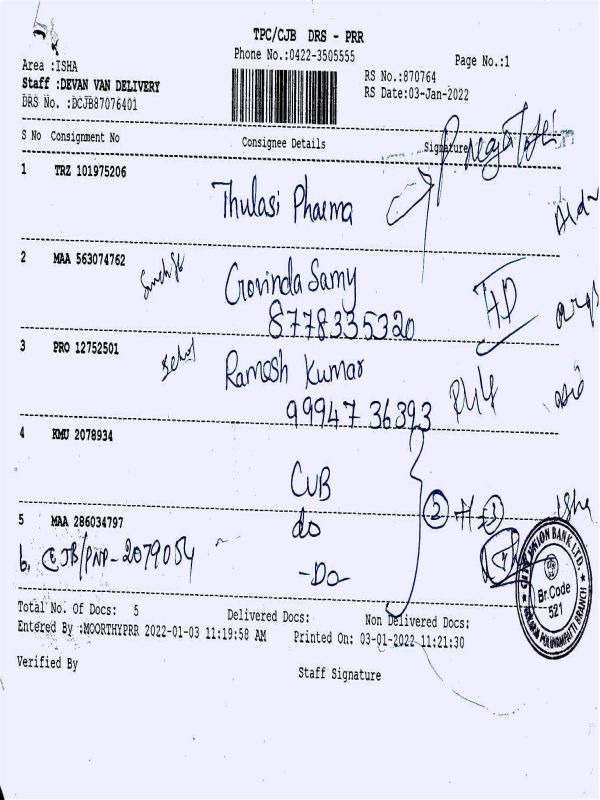 TPC/CJB DRS - PRR
Phone No.:0422-3505555
Page No.:1
Area :ISHA
Staff :DEVAN VAN DELIVERY
DRS No. :DCJB87076401
RS No.:870764
RS Date:03-Jan-2022
S No Consignment No Consignee Details Signature
1 TRZ 101975206
Thulasi Pharma
2 MAA 563074762
Govinda Samy
8778335320
3 PRO 12752501
Ramesh Kumar
99947 36393
4 KMU 2078934
CUB
5 MAA 286034797
do
6. CJB/PNP-2079054
-Do-
CITY UNION BANK LTD.
Br.Code
521
Total No. Of Docs: 5 Delivered Docs: Non Delivered Docs:
Entered By :MOORTHYPRR 2022-01-03 11:19:58 AM Printed On: 03-01-2022 11:21:30
Verified By
Staff Signature